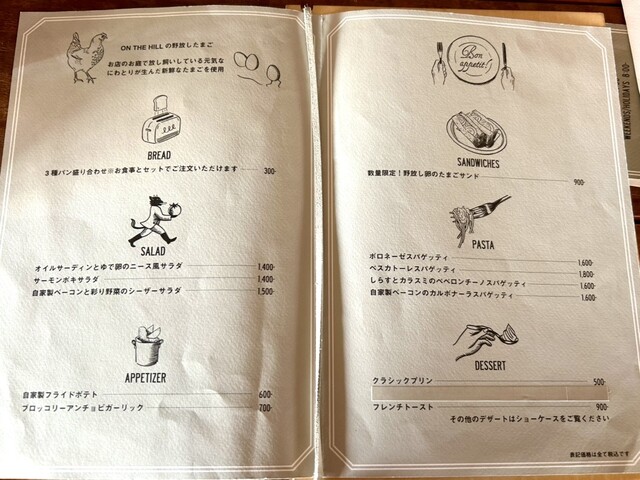 ON THE HILL の野放したまご
お店のお庭で放し飼いしている元気な
にわとりが生んだ新鮮なたまごを使用
BREAD
3種パン盛り合わせ※お食事とセットでご注文いただけます 300-
SALAD
オイルサーディンとゆで卵のニース風サラダ 1,400-
サーモンポキサラダ 1,400-
自家製ベーコンと彩り野菜のシーザーサラダ 1,500-
APPETIZER
自家製フライドポテト 600-
ブロッコリーアンチョビガーリック 700-
Bon
appetit!
SANDWICHES
数量限定!野放し卵のたまごサンド 900-
PASTA
ボロネーゼスパゲッティ 1,600-
ペスカトーレスパゲッティ 1,800-
しらすとカラスミのペペロンチーノスパゲッティ 1,600-
自家製ベーコンのカルボナーラスパゲッティ 1,600-
DESSERT
クラシックプリン 500-
フレンチトースト 900-
その他のデザートはショーケースをご覧ください
表記価格は全て税込です
WEEKENDS/HOLIDAYS 8:00-